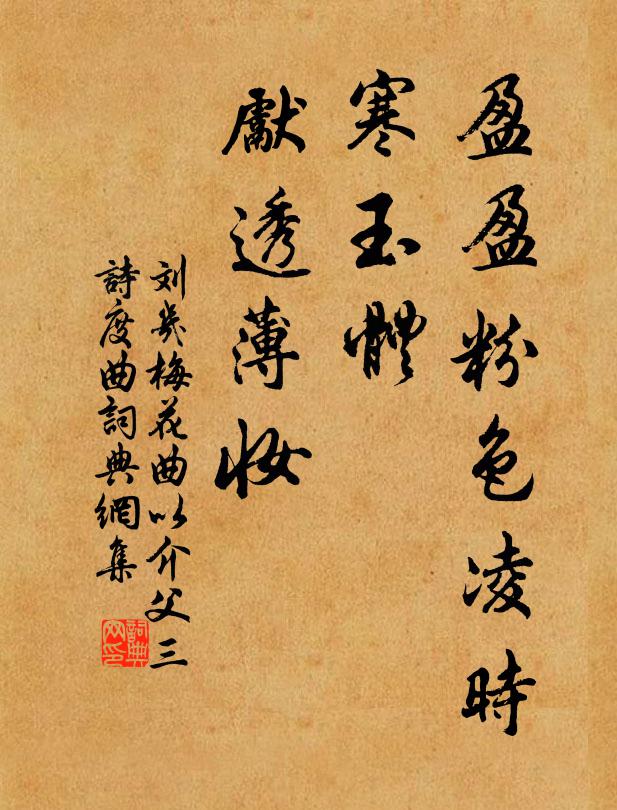 盈盈粉色凌時
寒玉體
獻透薄妝
刘幾梅花曲以介父三
詩度曲詞典網集
詞典
网印